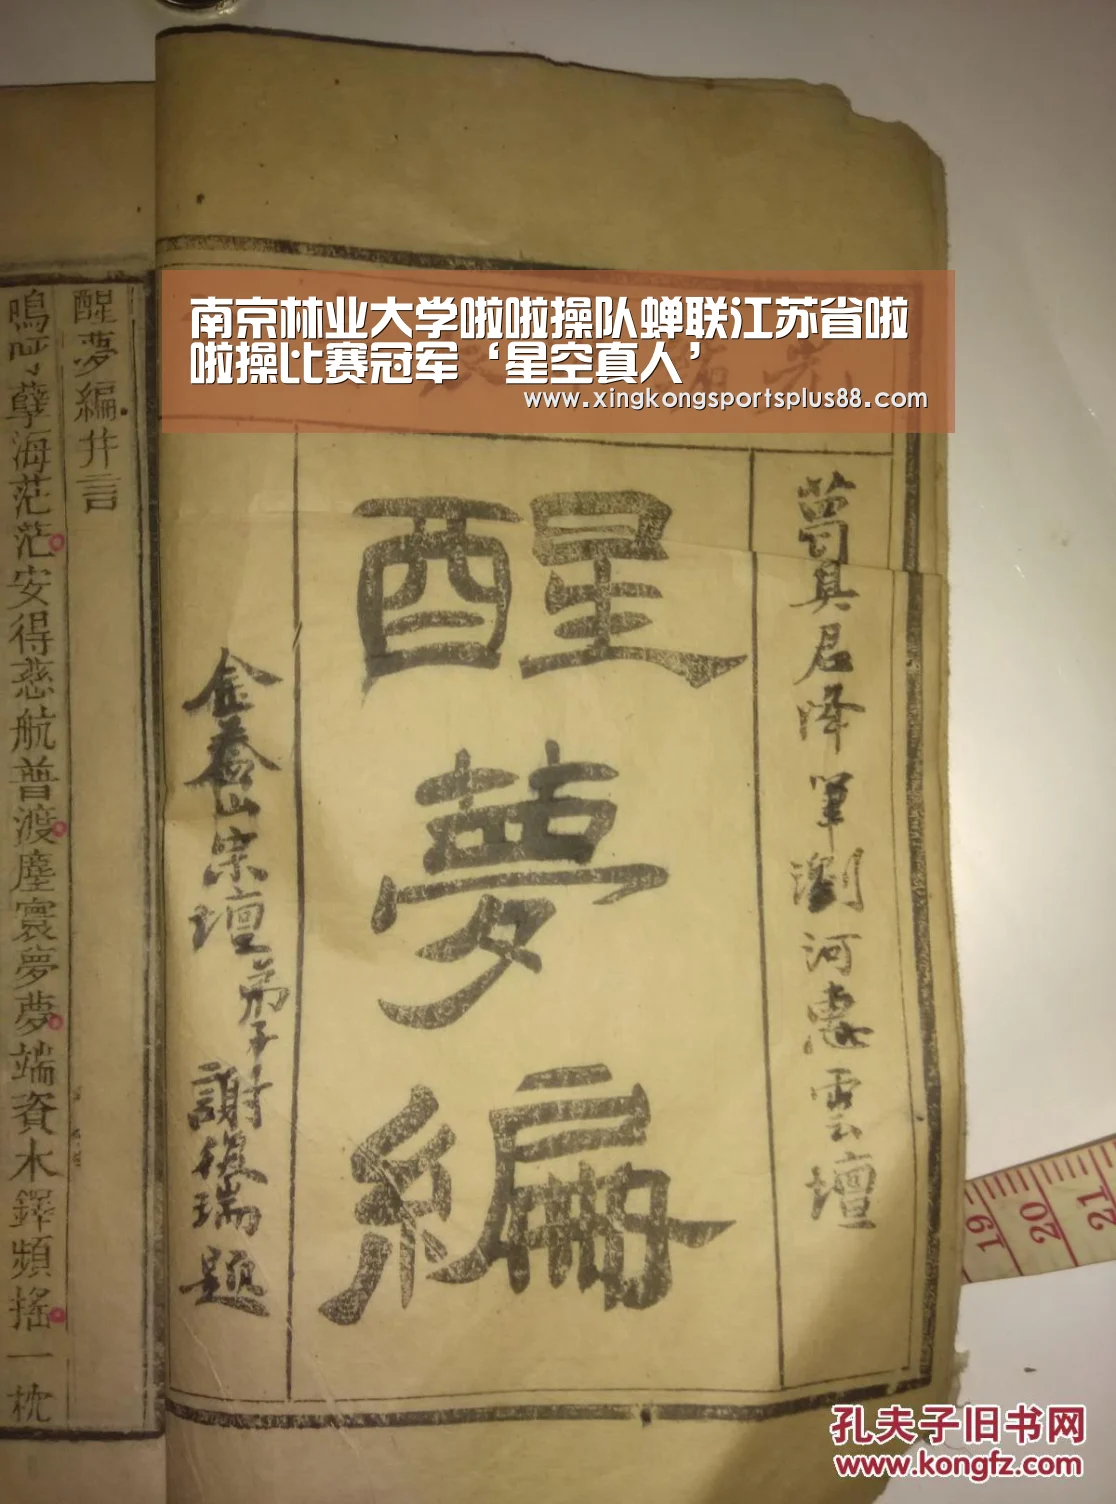 南京林业大学啦啦操队蝉联江苏省啦
啦操比赛冠军‘星空真人’
www.xingkongsportsplus88.com
真君降筆瀏河惠雲壇
醒夢編
金蓋山宗壇弟子謝復瑞題
醒夢編弁言
嗚呼孽海茫茫安得慈航普渡塵寰夢夢端資木鐸頻搖一枕
19 20 21
孔夫子旧书网
www.kongfz.com